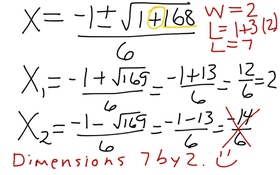 X = (-1 ± √(1+168))/6
W = 2
L = 1+3(2)
L = 7
X₁ = (-1 + √169)/6 = (-1+13)/6 = 12/6 = 2
X₂ = (-1 - √169)/6 = (-1-13)/6 = -14/6
Dimensions 7 by 2. :)